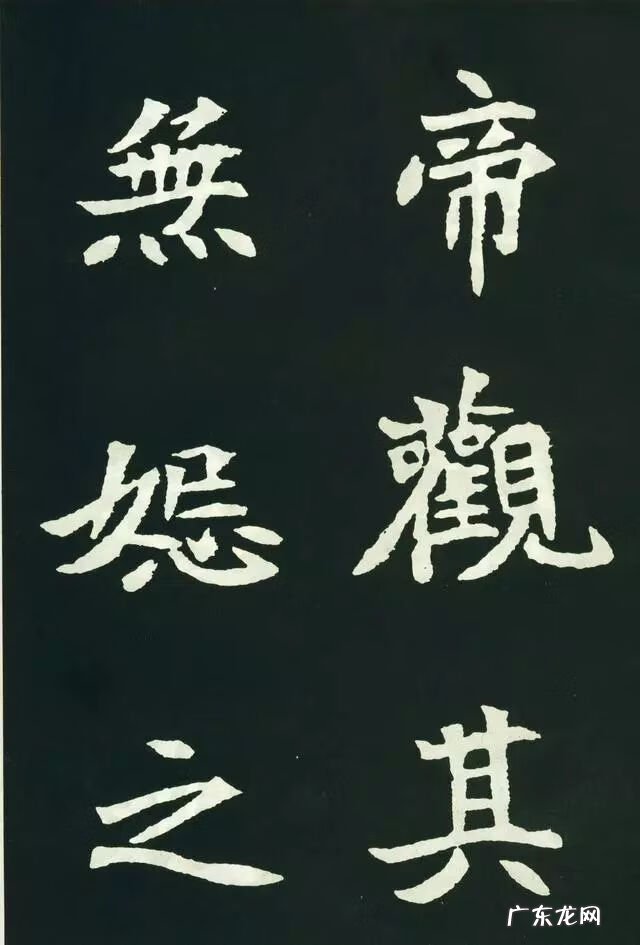 帝觀其
無之
广东龙网